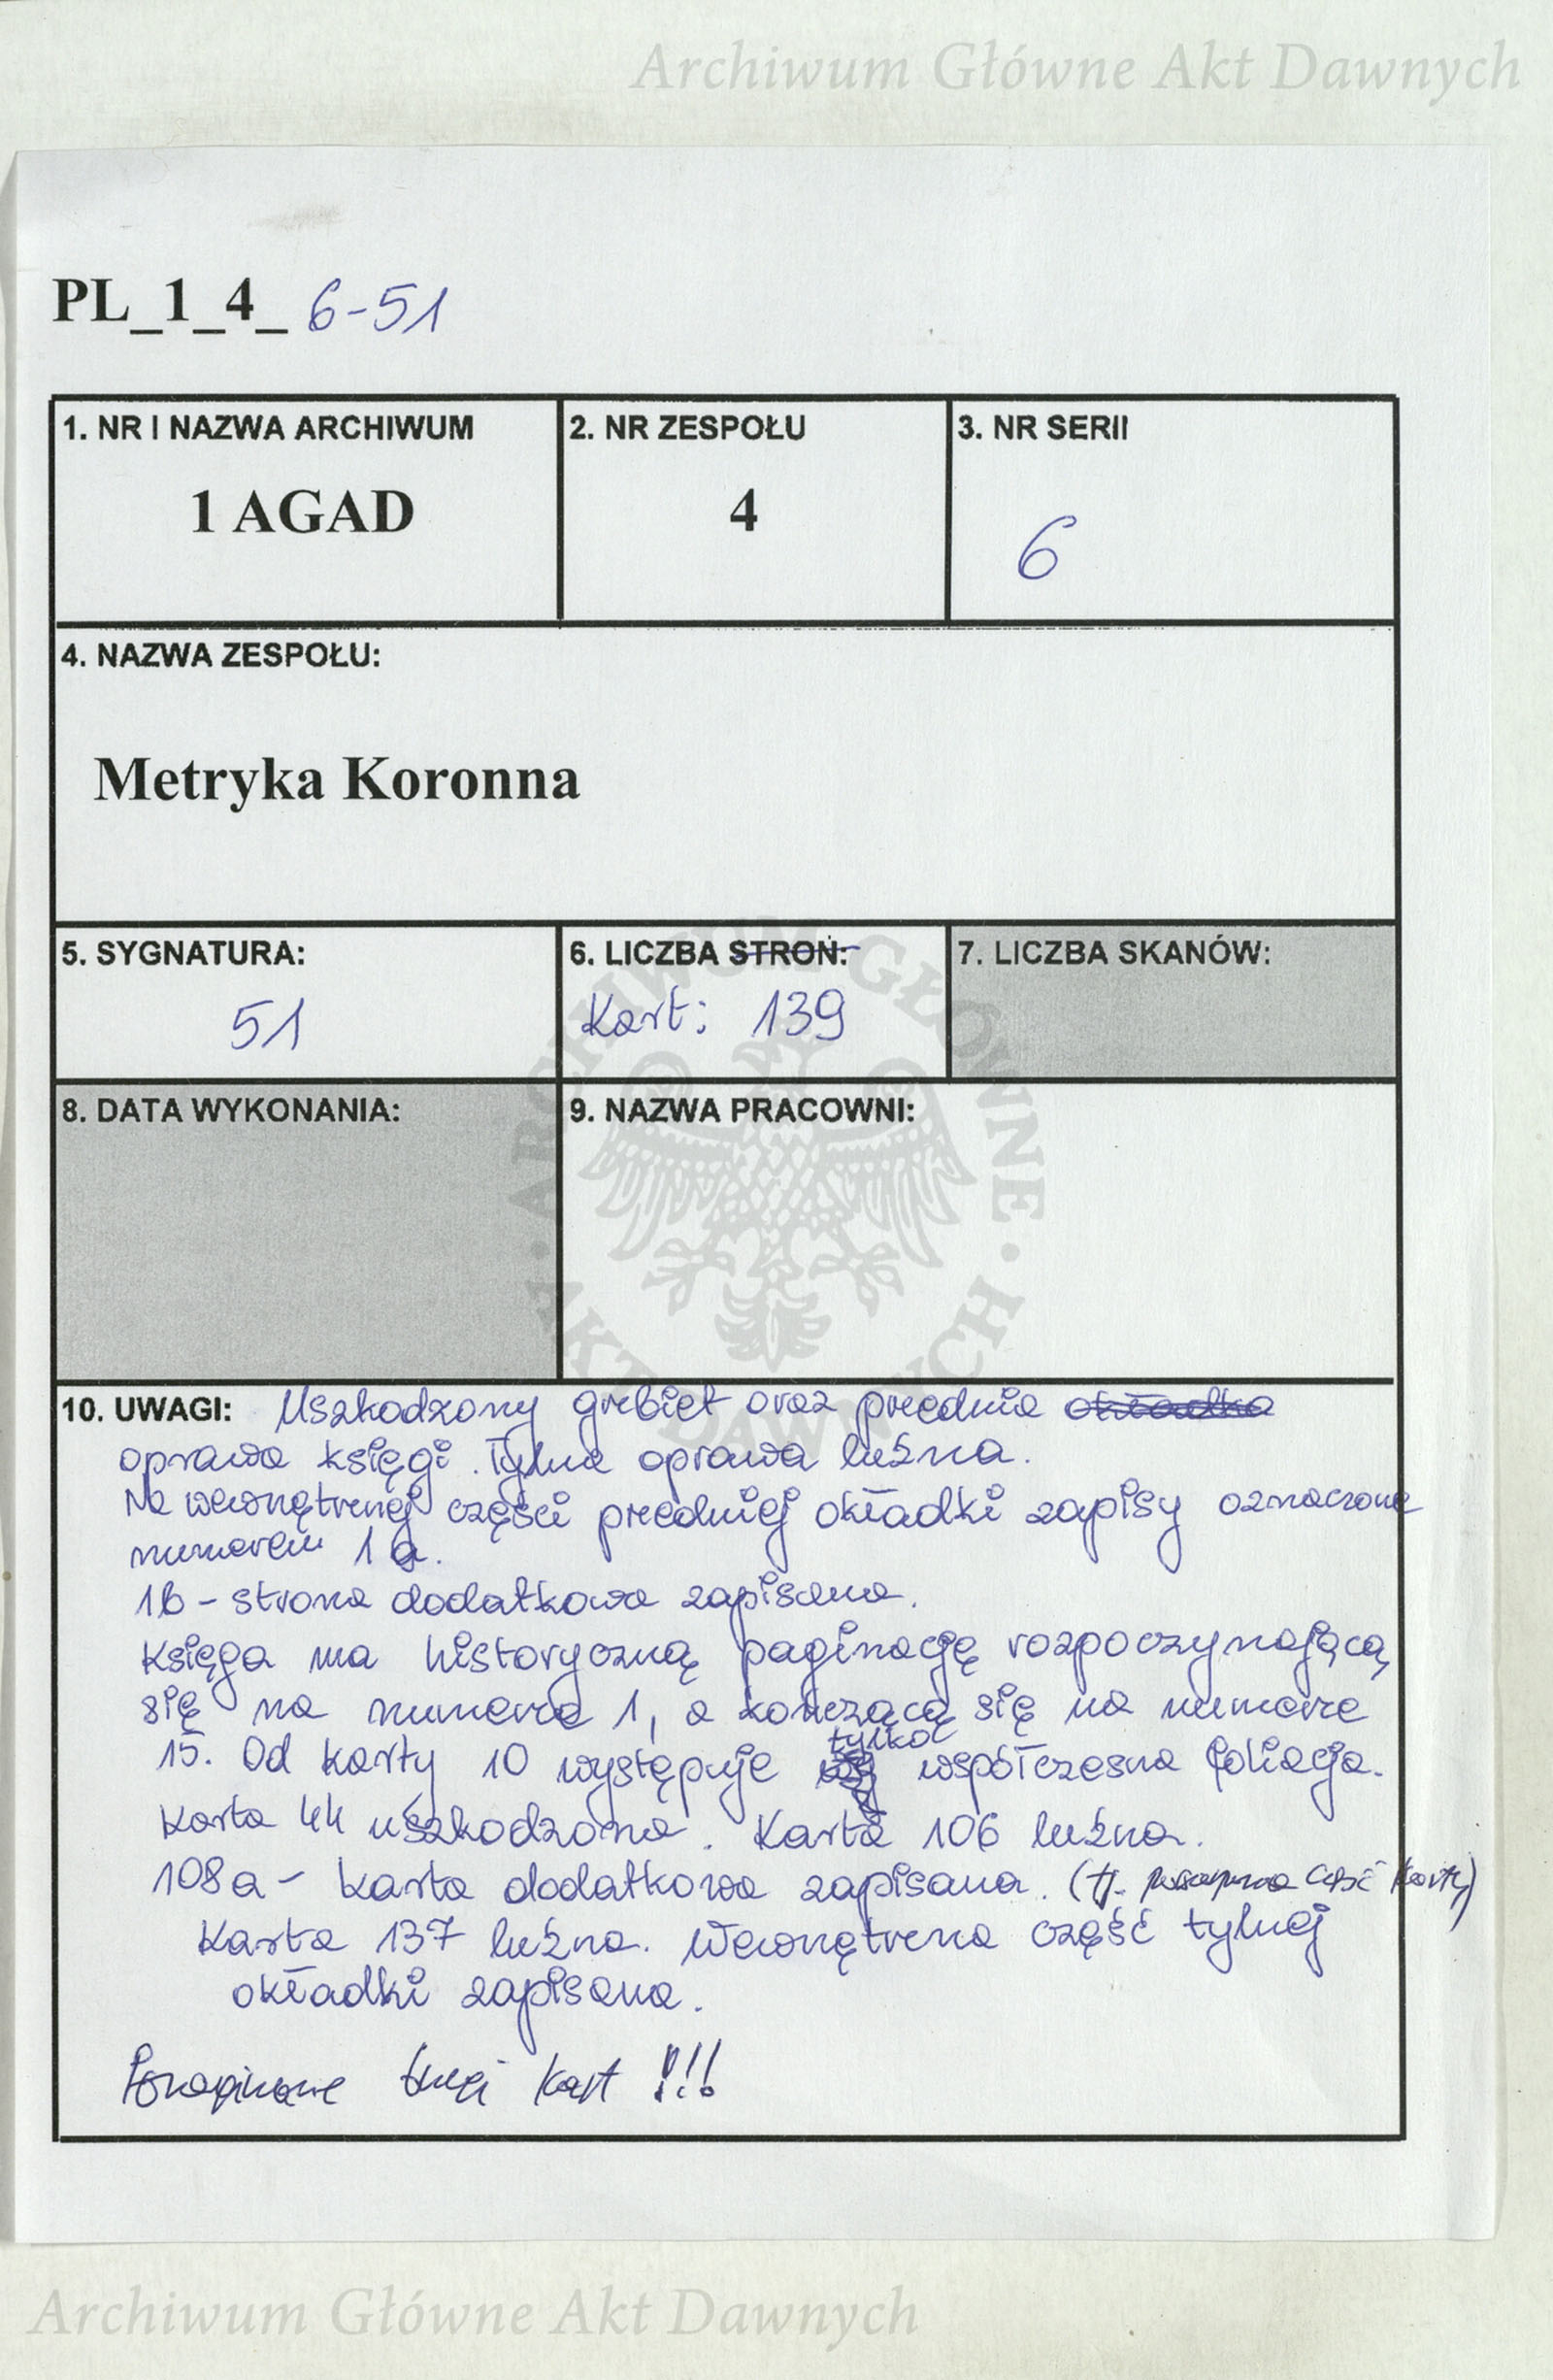 Archiwum Główne Akt Dawnych
PL_1_4_ 6-51
1. NR I NAZWA ARCHIWUM
1 AGAD
2. NR ZESPOŁU
4
3. NR SERII
6
4. NAZWA ZESPOŁU:
Metryka Koronna
5. SYGNATURA:
51
6. LICZBA STRON:
Kart: 139
7. LICZBA SKANÓW:
8. DATA WYKONANIA:
9. NAZWA PRACOWNI:
ARCHIWUM GŁÓWNE • AKT DAWNYCH •
10. UWAGI: Uszkodzony grzbiet oraz przednia okładka
oprawa księgi. Tylna oprawa luźna.
Na wewnętrznej części przedniej okładki zapisy oznaczone
numerem 1a.
1b - strona dodatkowa zapisana.
Księga ma historyczną paginację rozpoczynającą
się na numerze 1, a kończącą się na numerze
15. Od karty 10 występuje tylko współczesna foliacja.
Karta 44 uszkodzona. Karta 106 luźna.
108a - karta dodatkowa zapisana. (tj. część karty)
Karta 137 luźna. Wewnętrzna część tylnej
okładki zapisana.
kart !!!
Archiwum Główne Akt Dawnych